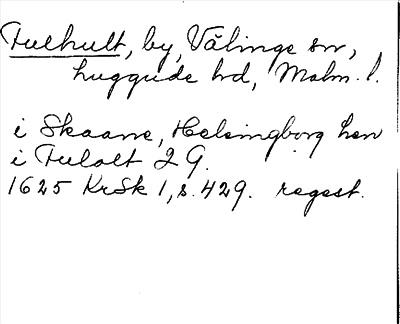 Fulhult, by, Välinge sn,
Luggude hd, Malm. l.
i Skaane, Helsingborg len
i Fulalt 2 G.
1625 KrSk 1, s. 429. regest.